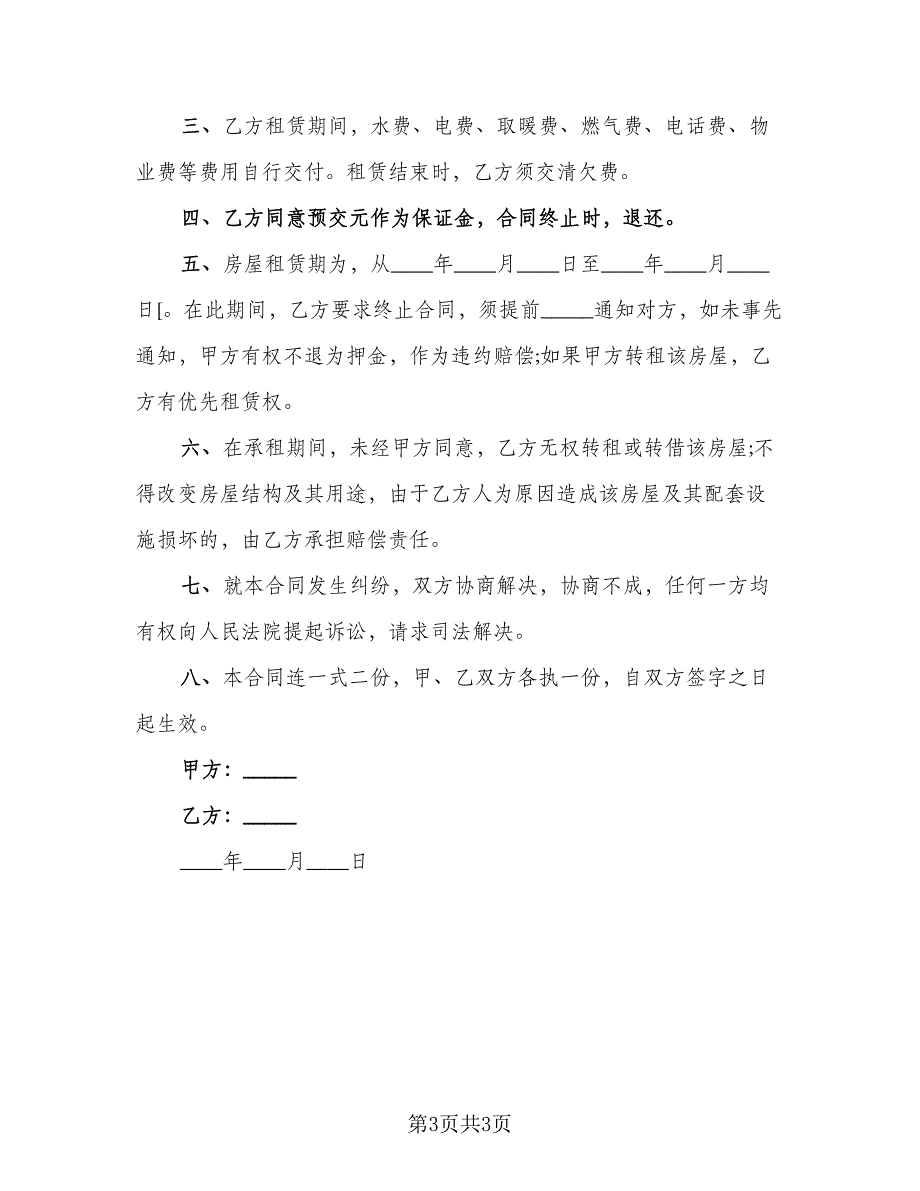 三、乙方租赁期间，水费、电费、取暖费、燃气费、电话费、物
业费等费用自行交付。租赁结束时，乙方须交清欠费。
四、乙方同意预交元作为保证金，合同终止时，退还。
五、房屋租赁期为，从____年____月____日至____年____月____
日[。在此期间，乙方要求终止合同，须提前_____通知对方，如未事先
通知，甲方有权不退为押金，作为违约赔偿;如果甲方转租该房屋，乙
方有优先租赁权。
六、在承租期间，未经甲方同意，乙方无权转租或转借该房屋;不
得改变房屋结构及其用途，由于乙方人为原因造成该房屋及其配套设
施损坏的，由乙方承担赔偿责任。
七、就本合同发生纠纷，双方协商解决，协商不成，任何一方均
有权向人民法院提起诉讼，请求司法解决。
八、本合同连一式二份，甲、乙双方各执一份，自双方签字之日
起生效。
甲方：_____
乙方：_____
____年____月____日
第3页共3页